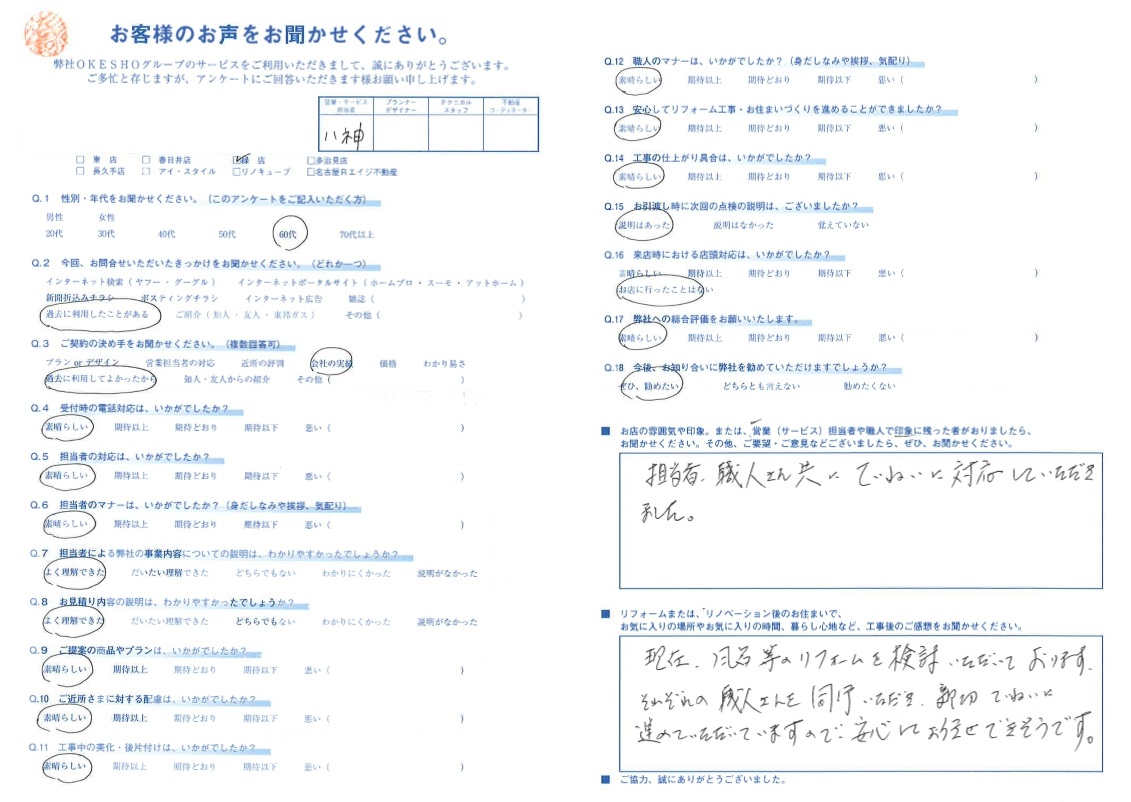 お客様のお声をお聞かせください。
弊社OKESHOグループのサービスをご利用いただきまして、誠にありがとうございます。
ご多忙と存じますが、アンケートにご回答いただきます様お願い申し上げます。
営業・サービス担当者 プランナーデザイナー テクニカルスタッフ 不動産コーディネーター
八神
□ 東 店 □ 春日井店 □ 緑 店 □ 多治見店
□ 長久手店 □ アイ・スタイル □ リノキューブ □ 名古屋Rエイジ不動産
Q.1 性別・年代をお聞かせください。（このアンケートをご記入いただく方）
男性 女性
20代 30代 40代 50代 60代 70代以上
Q.2 今回、お問合せいただいたきっかけをお聞かせください。（どれか一つ）
インターネット検索（ ヤフー ・ グーグル ） インターネットポータルサイト（ ホームプロ ・ スーモ ・ アットホーム ）
新聞折込みチラシ ポスティングチラシ インターネット広告 雑誌（ ）
過去に利用したことがある ご紹介（ 知人 ・ 友人 ・ 東邦ガス ） その他（ ）
Q.3 ご契約の決め手をお聞かせください。（複数回答可）
プラン or デザイン 営業担当者の対応 近所の評判 会社の実績 価格 わかり易さ
過去に利用してよかったから 知人・友人からの紹介 その他（ ）
Q.4 受付時の電話対応は、いかがでしたか？
素晴らしい 期待以上 期待どおり 期待以下 悪い（ ）
Q.5 担当者の対応は、いかがでしたか？
素晴らしい 期待以上 期待どおり 期待以下 悪い（ ）
Q.6 担当者のマナーは、いかがでしたか？（身だしなみや挨拶、気配り）
素晴らしい 期待以上 期待どおり 期待以下 悪い（ ）
Q.7 担当者による弊社の事業内容についての説明は、わかりやすかったでしょうか？
よく理解できた だいたい理解できた どちらでもない わかりにくかった 説明がなかった
Q.8 お見積り内容の説明は、わかりやすかったでしょうか？
よく理解できた だいたい理解できた どちらでもない わかりにくかった 説明がなかった
Q.9 ご提案の商品やプランは、いかがでしたか？
素晴らしい 期待以上 期待どおり 期待以下 悪い（ ）
Q.10 ご近所さまに対する配慮は、いかがでしたか？
素晴らしい 期待以上 期待どおり 期待以下 悪い（ ）
Q.11 工事中の美化・後片付けは、いかがでしたか？
素晴らしい 期待以上 期待どおり 期待以下 悪い（ ）
Q.12 職人のマナーは、いかがでしたか？（身だしなみや挨拶、気配り）
素晴らしい 期待以上 期待どおり 期待以下 悪い（ ）
Q.13 安心してリフォーム工事・お住まいづくりを進めることができましたか？
素晴らしい 期待以上 期待どおり 期待以下 悪い（ ）
Q.14 工事の仕上がり具合は、いかがでしたか？
素晴らしい 期待以上 期待どおり 期待以下 悪い（ ）
Q.15 お引渡し時に次回の点検の説明は、ございましたか？
説明はあった 説明はなかった 覚えていない
Q.16 来店時における店頭対応は、いかがでしたか？
素晴らしい 期待以上 期待どおり 期待以下 悪い（ ）
お店に行ったことはない
Q.17 弊社への総合評価をお願いいたします。
素晴らしい 期待以上 期待どおり 期待以下 悪い（ ）
Q.18 今後、お知り合いに弊社を勧めていただけますでしょうか？
ぜひ、勧めたい どちらとも言えない 勧めたくない
■ お店の雰囲気や印象。または、営業（サービス）担当者や職人で印象に残った者がおりましたら、
お聞かせください。その他、ご要望・ご意見などございましたら、ぜひ、お聞かせください。
担当者、職人さん共に ていねいに対応していただき
ました。
■ リフォームまたは、リノベーション後のお住まいで、
お気に入りの場所やお気に入りの時間、暮らし心地など、工事後のご感想をお聞かせください。
現在、風呂等のリフォームを検討いただいております。
それぞれの職人さんを同行いただき、親切ていねいに
進めていただいていますので、安心してお任せできそうです。
■ ご協力、誠にありがとうございました。